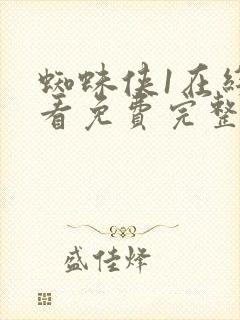 蜘蛛侠1在线
看免费完整
盛佳烽